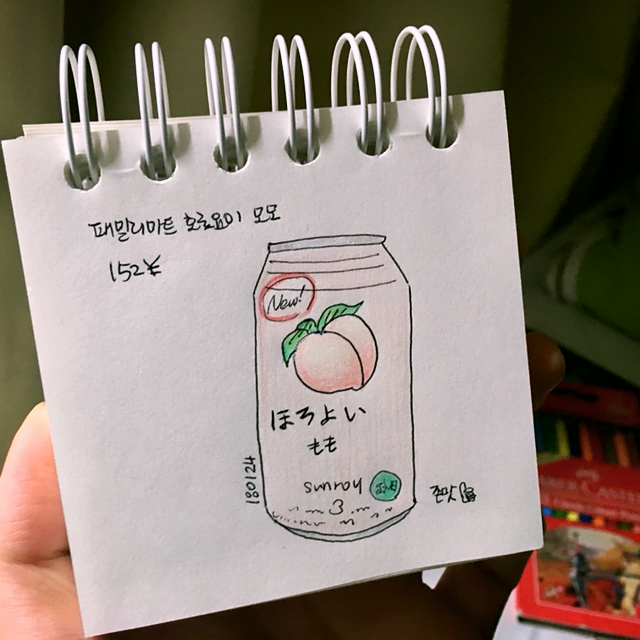 패밀리마트 호로요이 모모
152¥
New!
ほろよい
もも
sunroh
3
181024
존맛
FABER-CASTELL